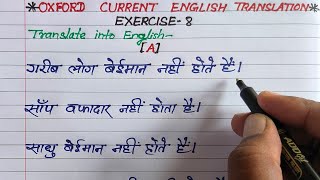 *OXFORD CURRENT ENGLISH TRANSLATION*
EXERCISE-8
Translate into English-
[A]
गरीब लोग बेईमान नहीं होते हैं।
साँप वफादार नहीं होता है।
साधु बेईमान नहीं होते हैं।